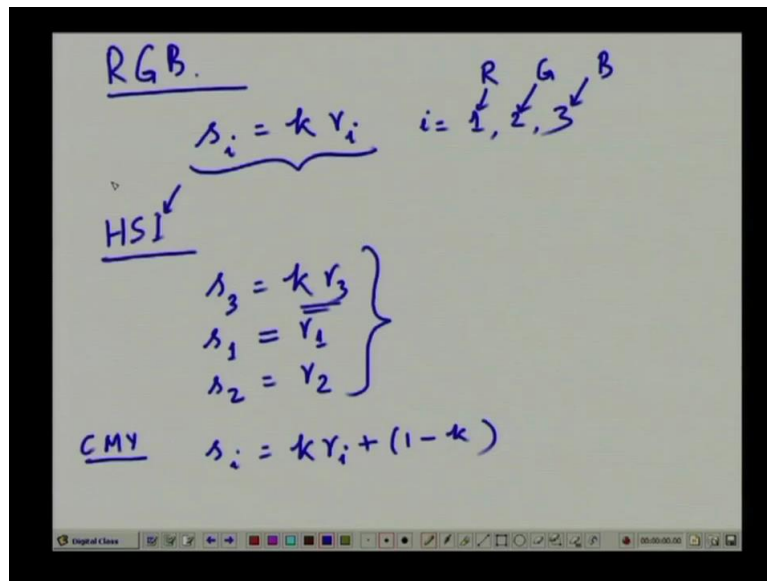 RGB.
R G B
s_i = k r_i i = 1, 2, 3
HSI
s_3 = k r_3
s_1 = r_1
s_2 = r_2
CMY s_i = k r_i + (1 - k)
Digital Class 00:00:00.00